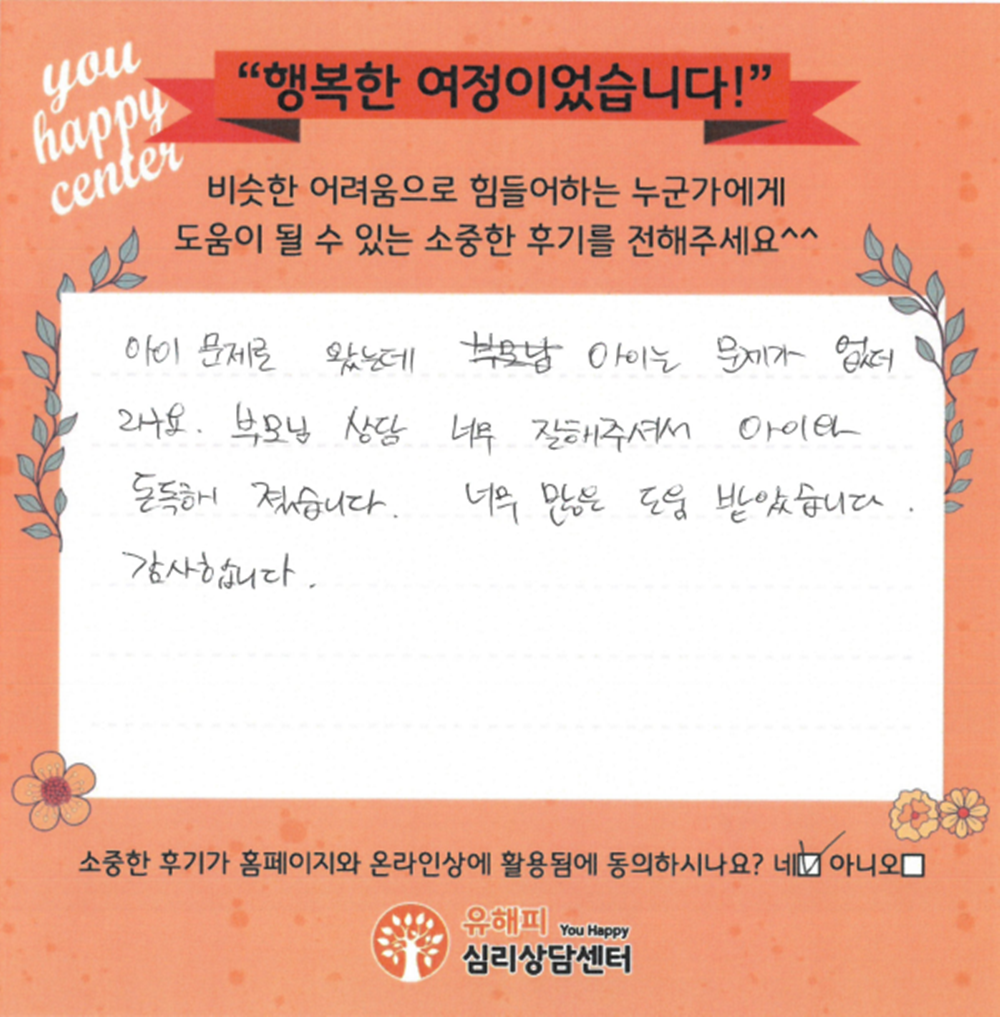 you
happy
center
“행복한 여정이었습니다!”
비슷한 어려움으로 힘들어하는 누군가에게
도움이 될 수 있는 소중한 후기를 전해주세요^^
아이 문제로 왔는데 부모님 아이는 문제가 없더
라구요. 부모님 상담 너무 잘해주셔서 아이와
돈독해 졌습니다. 너무 많은 도움 받았습니다.
감사합니다.
소중한 후기가 홈페이지와 온라인상에 활용됨에 동의하시나요? 네 아니오
유해피 You Happy
심리상담센터